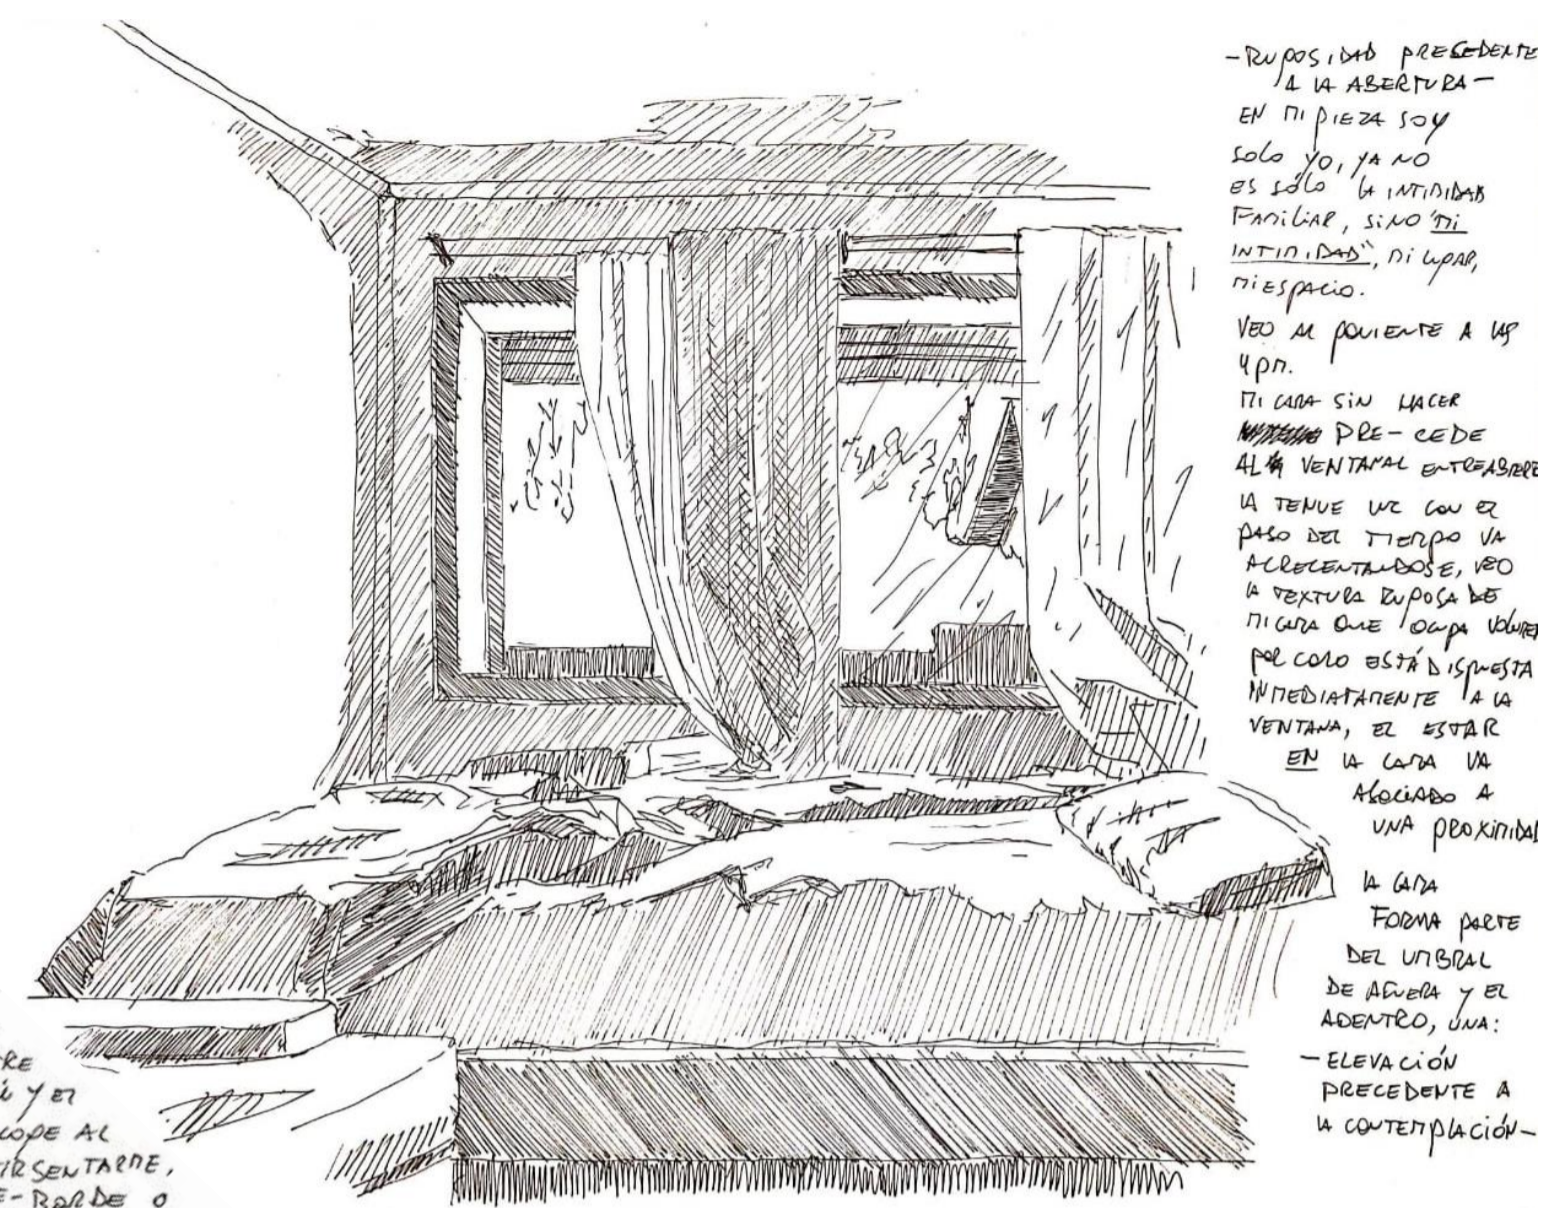 -RUGOSIDAD PRECEDENTE
A LA ABERTURA-
EN MI PIEZA SOY
SOLO YO, YA NO
ES SÓLO LA INTIMIDAD
FAMILIAR, SINO "MI
INTIMIDAD", MI LUGAR,
MI ESPACIO.
VEO AL PONIENTE A LAS
4 PM.
MI CAMA SIN HACER
PRE-CEDE
AL VENTANAL ENTREABIERT
LA TENUE LUZ CON EL
PASO DEL TIEMPO VA
ACRECENTANDOSE, VEO
LA TEXTURA RUGOSA DE
MI CAMA QUE OCUPA VOLUME
POR COMO ESTÁ DISPUESTA
INMEDIATAMENTE A LA
VENTANA, EL ESTAR
EN LA CAMA VA
ASOCIADO A
UNA PROXIMIDAD
LA CAMA
FORMA PARTE
DEL UMBRAL
DE AFUERA Y EL
ADENTRO, UNA:
-ELEVACIÓN
PRECEDENTE A
LA CONTEMPLACIÓN-
RE
Y EL
COGE AL
IR SENTARME,
E-BORDE O